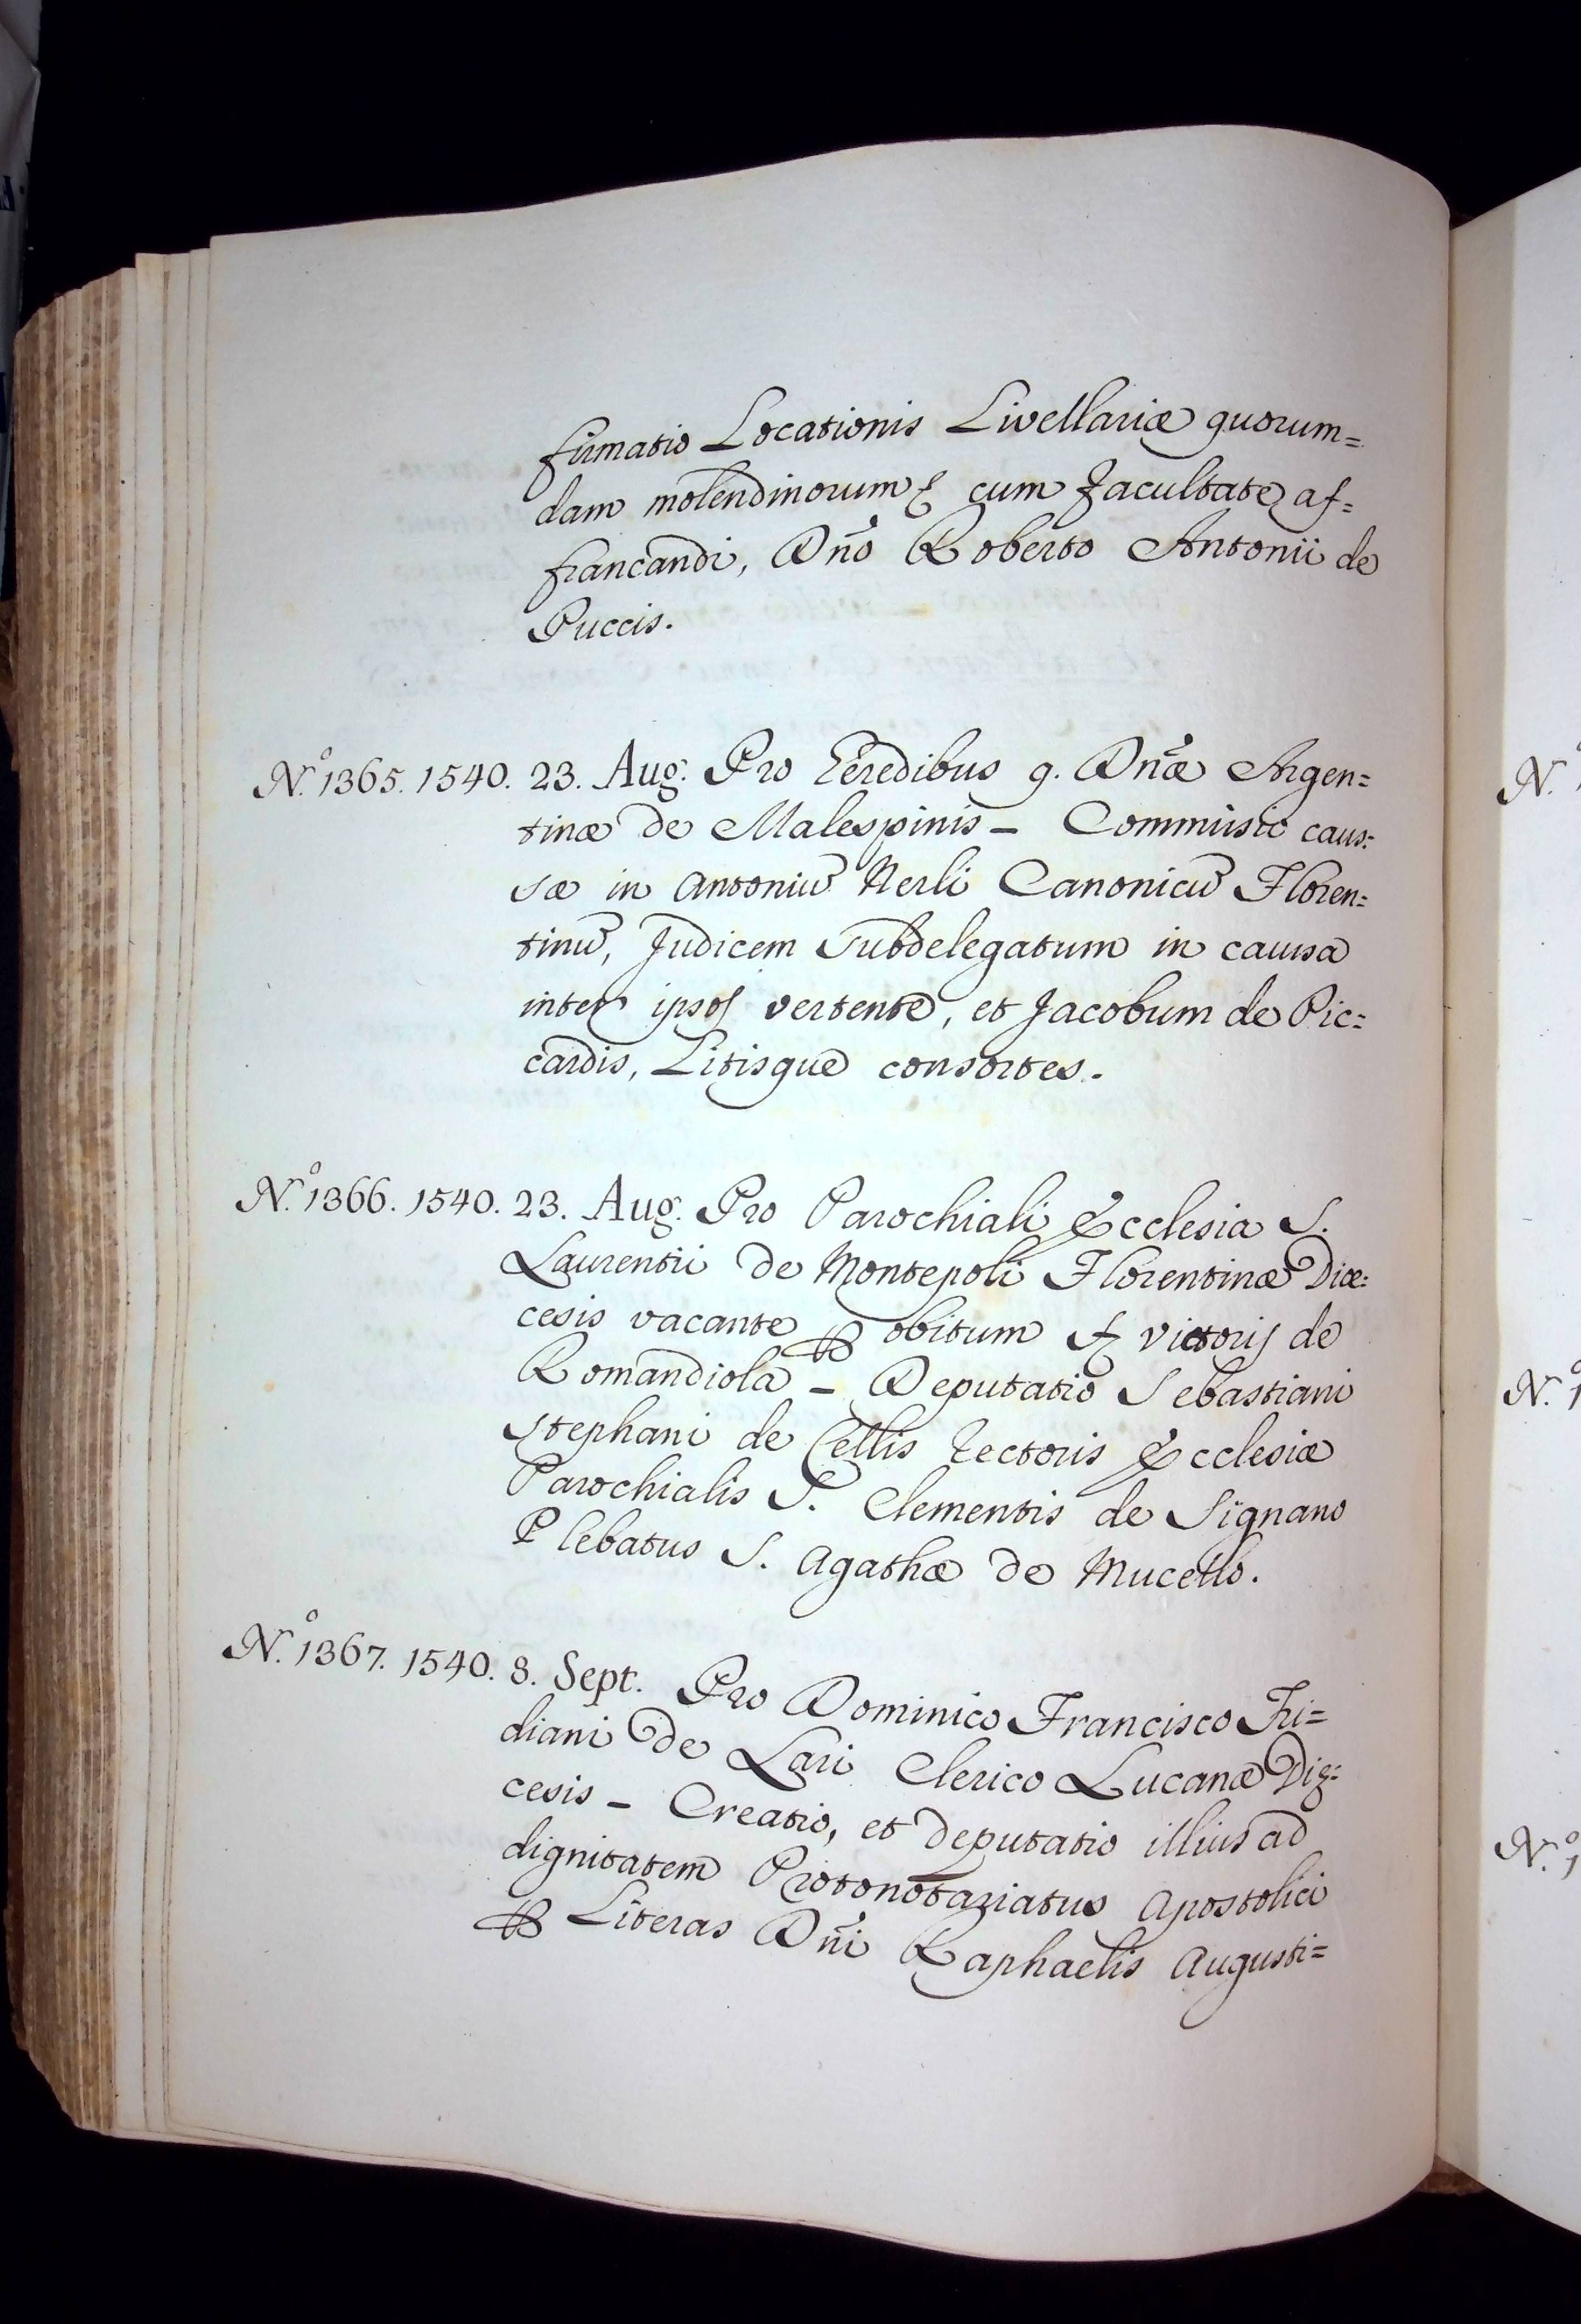 firmatio Locationis Livellariæ quorum=
dam molendinorum & cum facultate af=
francandi, Dño Roberto Antonii de
Puccis.
N.º 1365. 1540. 23. Aug. Pro Eeredibus q. Dñæ Argen=
tinæ de Malespinis – Commissio caus=
sæ in Antoniũ Nerli Canonicũ Floren=
tinũ, Judicem Subdelegatum in causa
inter ipsos vertente, et Jacobum de Pic=
cardis, Litisque consortes.
N.º 1366. 1540. 23. Aug. Pro Parochiali Ecclesia S.
Laurentii de Montepoli Florentinæ Diœ=
cesis vacante ꝑ obitum victoris de
Romandiola – Deputatio Sebastiani
Stephani de Cellis Rectoris Ecclesiæ
Parochialis S. Clementis de Signano
Plebatus S. Agathæ de Mucello.
N.º 1367. 1540. 8. Sept. Pro Dominico Francisco Fri=
diani de Lari Clerico Lucanæ Diœ=
cesis – Creatio, et deputatio illius ad
dignitatem Protonotariatus Apostolici
ꝑ Literas Dñi Raphaelis Augusti=
N.º 1
N.º 1
N.º 1